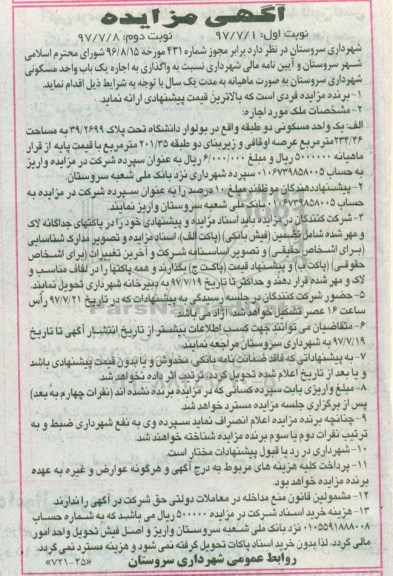 آگهی مزایده
نوبت اول: ۹۷/۷/۱ نوبت دوم: ۹۷/۷/۸
شهرداری سروستان در نظر دارد برابر مجوز شماره ۴۳۱ مورخه ۹۶/۸/۱۵ شورای محترم اسلامی
شهر سروستان و آیین نامه مالی شهرداری نسبت به واگذاری به اجاره یک باب واحد مسکونی
شهرداری سروستان به صورت ماهیانه به مدت یک سال با توجه به شرایط ذیل اقدام نماید.
۱- برنده مزایده فردی است که بالاترین قیمت پیشنهادی ارائه نماید.
۲- مشخصات ملک مورد اجاره:
الف: یک واحد مسکونی دو طبقه واقع در بولوار دانشگاه تحت پلاک ۳۹/۲۶۹۹ به مساحت
۲۳۴/۴۶ مترمربع عرصه اوقافی و زیربنای دو طبقه ۲۰۱/۳۵ مترمربع با قیمت پایه از قرار
ماهیانه ۵۰۰۰۰۰۰ ریال و مبلغ ۶/۰۰۰/۰۰۰ ریال به عنوان سپرده شرکت در مزایده واریز
به حساب ۰۱۰۶۷۳۹۸۵۸۰۰۵ سپرده شهرداری نزد بانک ملی شعبه سروستان.
۳- پیشنهاددهندگان موظفند مبلغ ۱۰ درصد را به عنوان سپرده شرکت در مزایده به
حساب ۰۱۰۶۷۳۹۸۵۸۰۰۵ بانک ملی شعبه سروستان واریز نمایند.
۴- شرکت کنندگان در مزایده باید اسناد مزایده و پیشنهادی خود را در پاکتهای جداگانه لاک
و مهر شده شامل تضمین (فیش بانکی) (پاکت الف)، اسناد مزایده و تصویر مدارک شناسایی
(برای اشخاص حقیقی) و تصویر اساسنامه شرکت و آخرین تغییرات (برای اشخاص
حقوقی) (پاکت ب) و پیشنهاد قیمت (پاکت ج) بگذارند و همه پاکتها را در لفاف مناسب و
لاک و مهر شده قرار دهند و حداکثر تا تاریخ ۹۷/۷/۱۹ به دبیرخانه شهرداری تحویل نمایند.
۵- حضور شرکت کنندگان در جلسه رسیدگی به پیشنهادات که در تاریخ ۹۷/۷/۲۱ رأس
ساعت ۱۶ عصر تشکیل خواهد شد، آزاد می باشد.
۶- متقاضیان می توانند جهت کسب اطلاعات بیشتر از تاریخ انتشار آگهی تا تاریخ
۹۷/۷/۱۹ به شهرداری سروستان مراجعه نمایند.
۷- به پیشنهاداتی که فاقد ضمانت نامه بانکی، مخدوش و یا بدون قیمت پیشنهادی باشد
و یا بعد از تاریخ اعلام شده تحویل گردد، ترتیب اثر داده نخواهد شد.
۸- مبلغ واریزی بابت سپرده کسانی که در مزایده برنده نشده اند (نفرات چهارم به بعد)
پس از برگزاری جلسه مزایده مسترد خواهد شد.
۹- چنانچه برنده مزایده اعلام انصراف نماید سپرده وی به نفع شهرداری ضبط و به
ترتیب نفرات دوم یا سوم برنده مزایده شناخته خواهند شد.
۱۰- شهرداری در رد یا قبول پیشنهادات مختار است.
۱۱- پرداخت کلیه هزینه های مربوط به درج آگهی و هرگونه عوارض و غیره به عهده
برنده مزایده خواهد بود.
۱۲- مشمولین قانون منع مداخله در معاملات دولتی حق شرکت در آگهی را ندارند.
۱۳- هزینه خرید اسناد شرکت در مزایده ۵۰۰۰۰۰ ریال می باشد که به شماره حساب
۰۱۰۵۵۹۱۸۸۸۰۰۸ نزد بانک ملی شعبه سروستان واریز و اصل فیش تحویل واحد امور
مالی گردد، لذا بدون خرید اسناد پاکات تحویل گرفته نمی شود و هزینه مسترد نمی گردد.
روابط عمومی شهرداری سروستان «۷۲۱-۲۵»